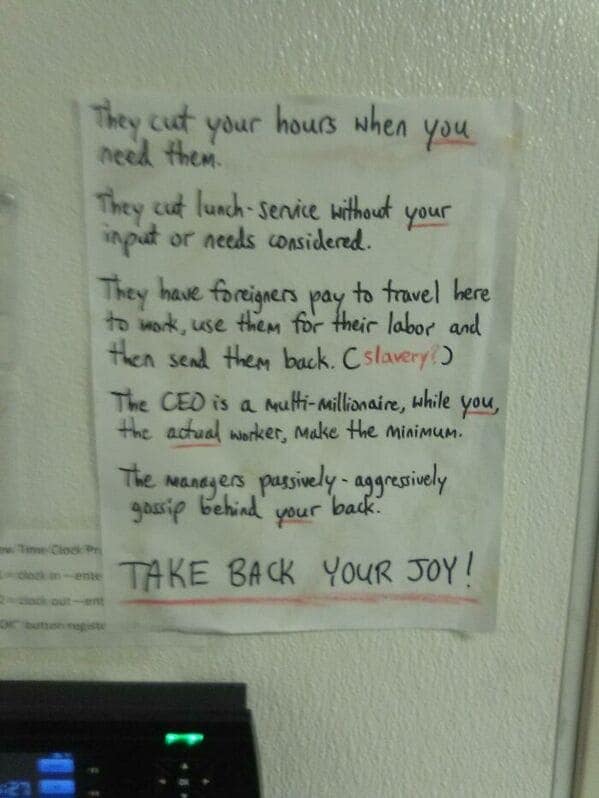 They cut your hours when you
need them.
They cut lunch-service without your
input or needs considered.
They have foreigners pay to travel here
to work, use them for their labor and
then send them back. (slavery?)
The CEO is a multi-millionaire, while you,
the actual worker, make the minimum.
The managers passively-aggressively
gossip behind your back.
TAKE BACK YOUR JOY!
Time Clock
clock in
clock out
button
:27